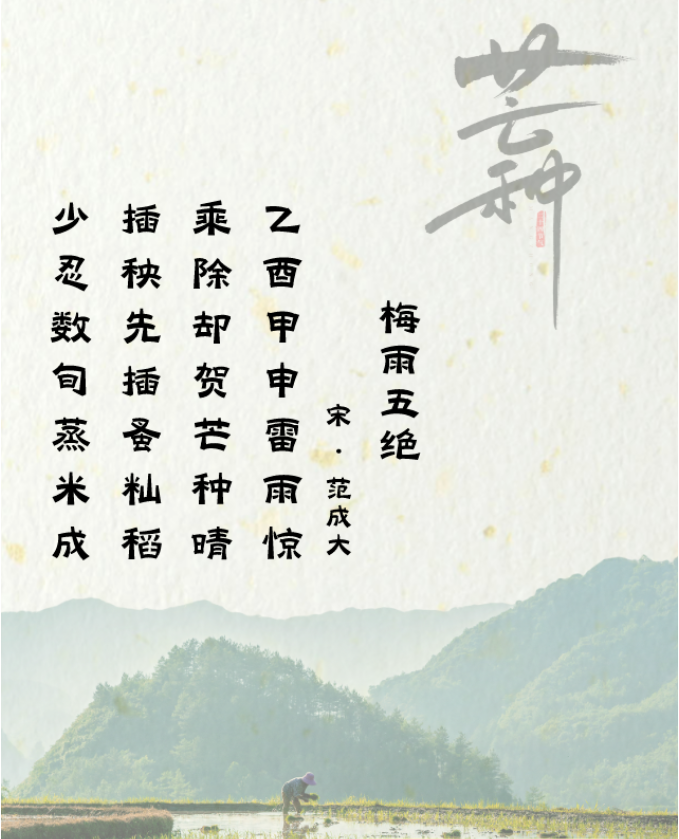 芒种
梅雨五绝
宋·范成大
乙酉甲申雷雨惊
乘除却贺芒种晴
插秧先插蚤籼稻
少忍数旬蒸米成